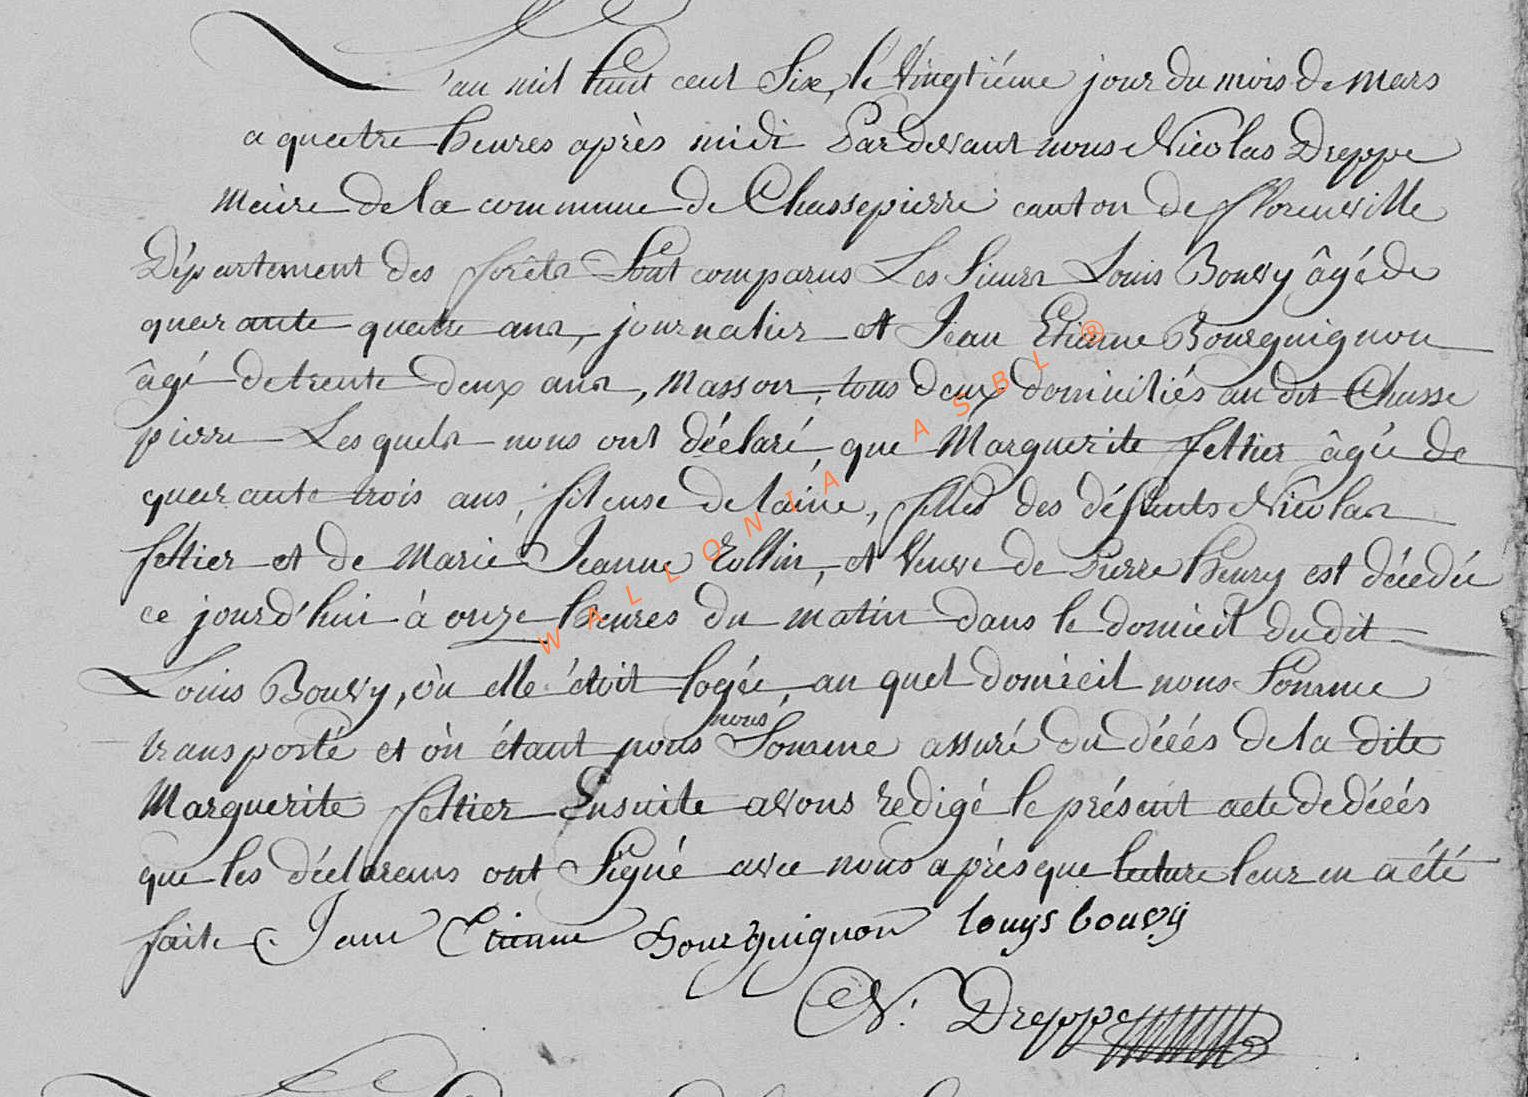 L'an mil huit cent Six, le Vingtiéme jour du mois de Mars
a quatre heures après midi Pardevant nous Nicolas Dreppe
Maire de la commune de Chassepierre canton de florenville
Département des forêts Sont comparus Les Sieurs Louis Bouvy âgé de
quarante quatre ans, journalier et Jean Etienne Bourguignon
âgé de trente deux ans, Masson, tous deux domiciliés au dit Chasse
pierre Lesquels nous ont déclaré, que Marguerite feltier âgée de
quarante trois ans, fileuse de laine, fille des défunts Nicolas
feltier et de Marie Jeanne Rollin, et Veuve de Pierre henry est décédée
ce jourd'hui à onze heures du matin dans le domicil du dit
Louis Bouvy, où elle étoit logée, au quel domicil nous Somme
transporté et où étant nous nous Somme assuré du décés de la dite
Marguerite feltier Ensuite avons redigé le présent acte de décés
que les déclarens ont Signé avec nous après que lecture leur en a été
faite. Jean Etienne Bourguignon louys bouvÿ
N. Dreppe
WALLONIA ASBL ®